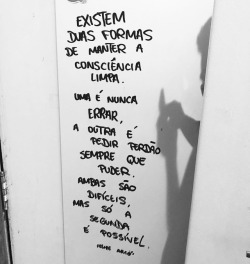 EXISTEM
DUAS FORMAS
DE MANTER A
CONSCIÊNCIA
LIMPA.
UMA É NUNCA
ERRAR,
A OUTRA É
PEDIR PERDÃO
SEMPRE QUE
PUDER.
AMBAS SÃO
DIFÍCEIS,
MAS SÓ A
SEGUNDA
É POSSÍVEL.